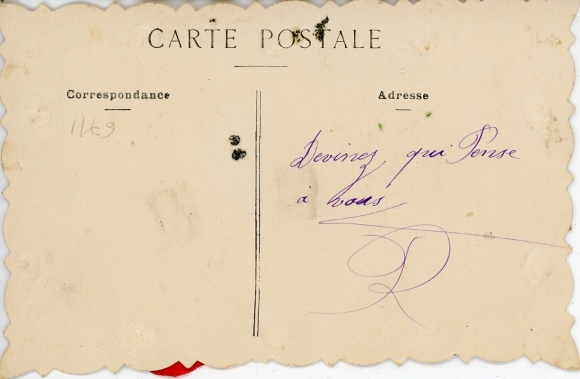 CARTE POSTALE
Correspondance
Adresse
1169
Devinez qui Pense
à vous
R